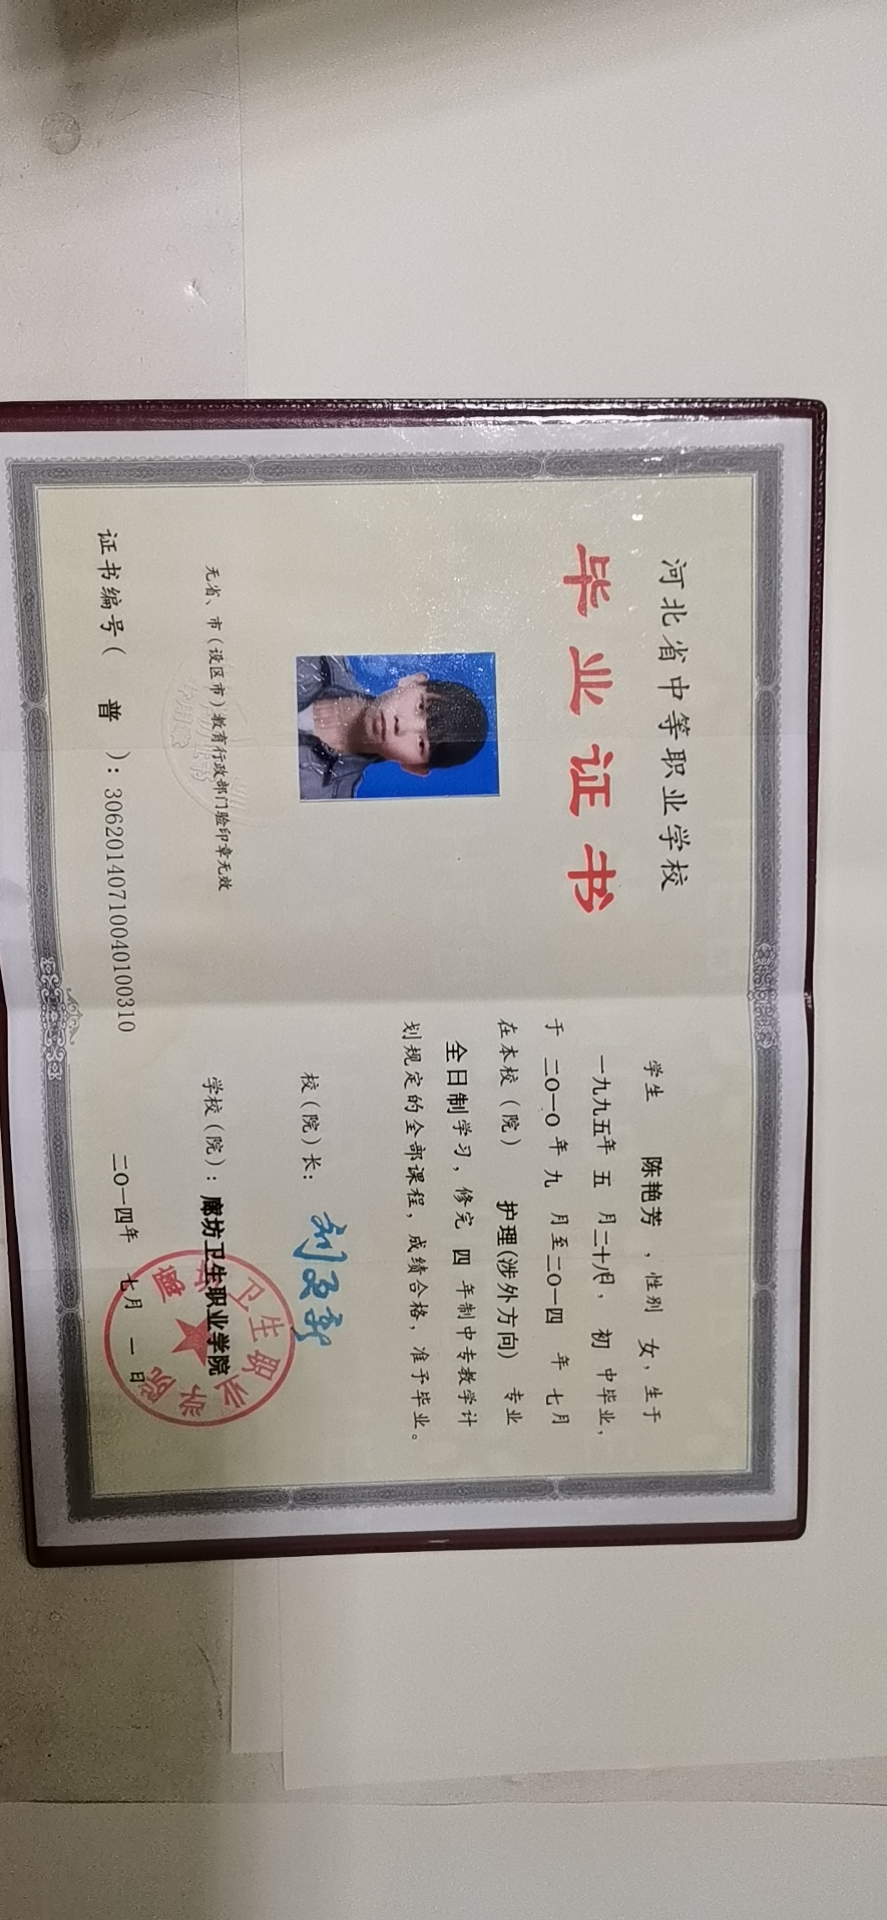 河北省中等职业学校
毕业证书
无省、市(设区市)教育行政部门验印章无效
证书编号( 普 ):30620140710040100310
学生 陈艳芳 ,性别 女,生于
一九九五年 五 月二十八日, 初 中毕业,
于 二〇一〇 年 九 月至二〇一四 年 七月
在本校(院) 护理(涉外方向) 专业
全日制学习,修完 四 年制中专教学计
划规定的全部课程,成绩合格,准予毕业。
校(院)长:
学校(院):廊坊卫生职业学院
二〇一四年 七月 一 日
廊坊卫生职业学院